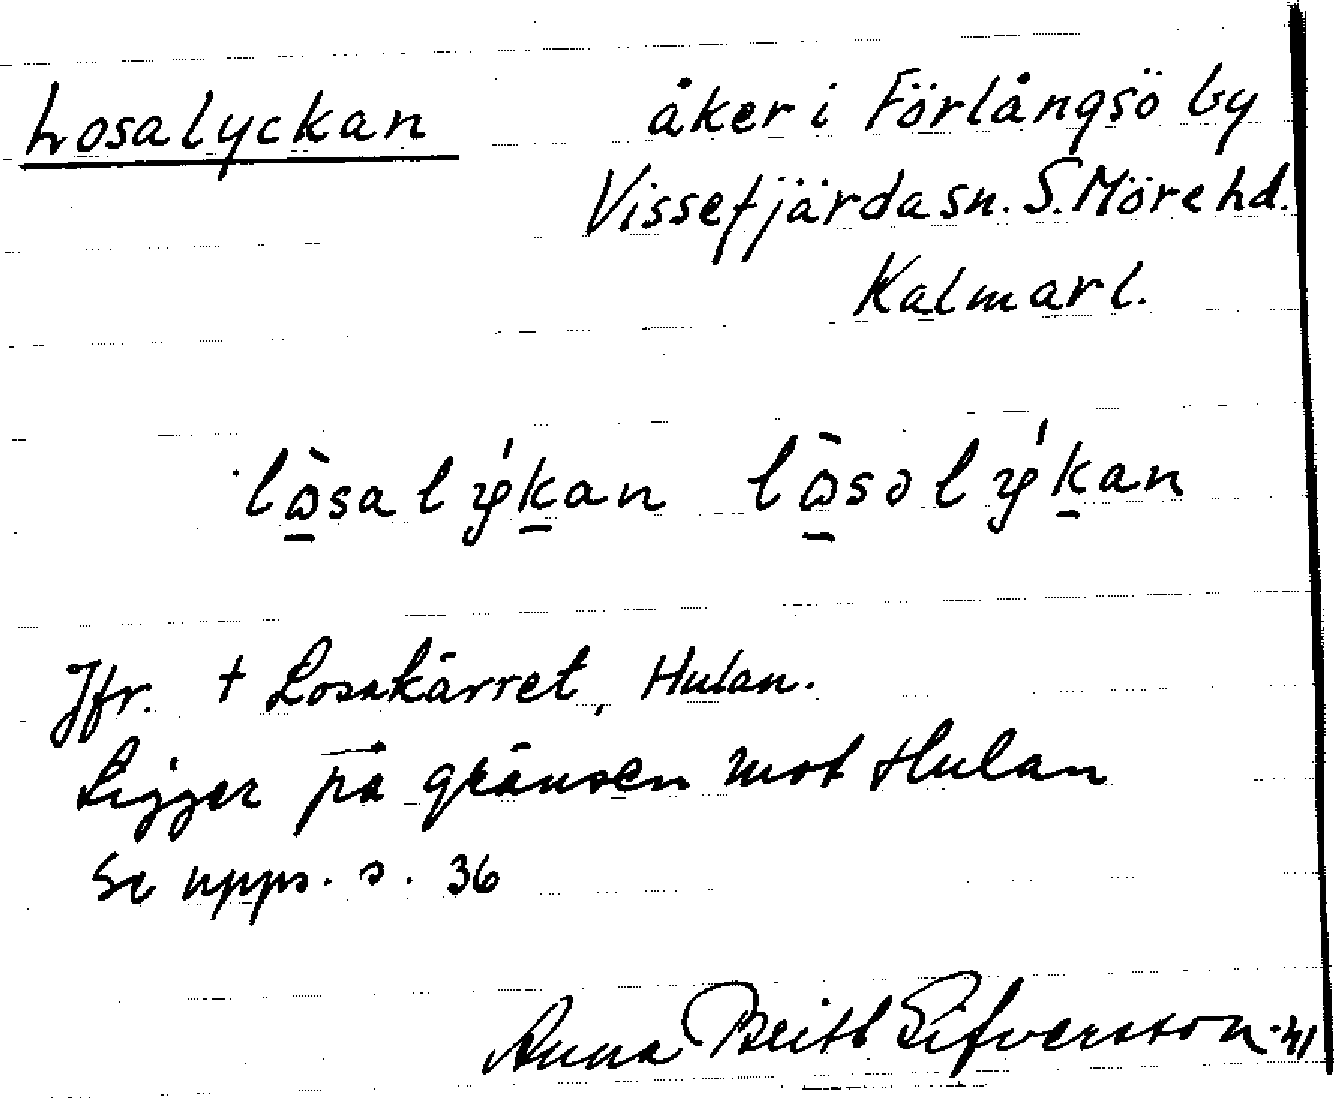 Losalyckan åker i Förlångsö by
Vissefjärda sn. S. Möre hd.
Kalmar l.
lòsalýkan lòsəlýkan
Jfr. + Losakärret, Hulan.
Ligger på gränsen mot Hulan
Se upps. s. 36
Anna Britt Sifversson -41